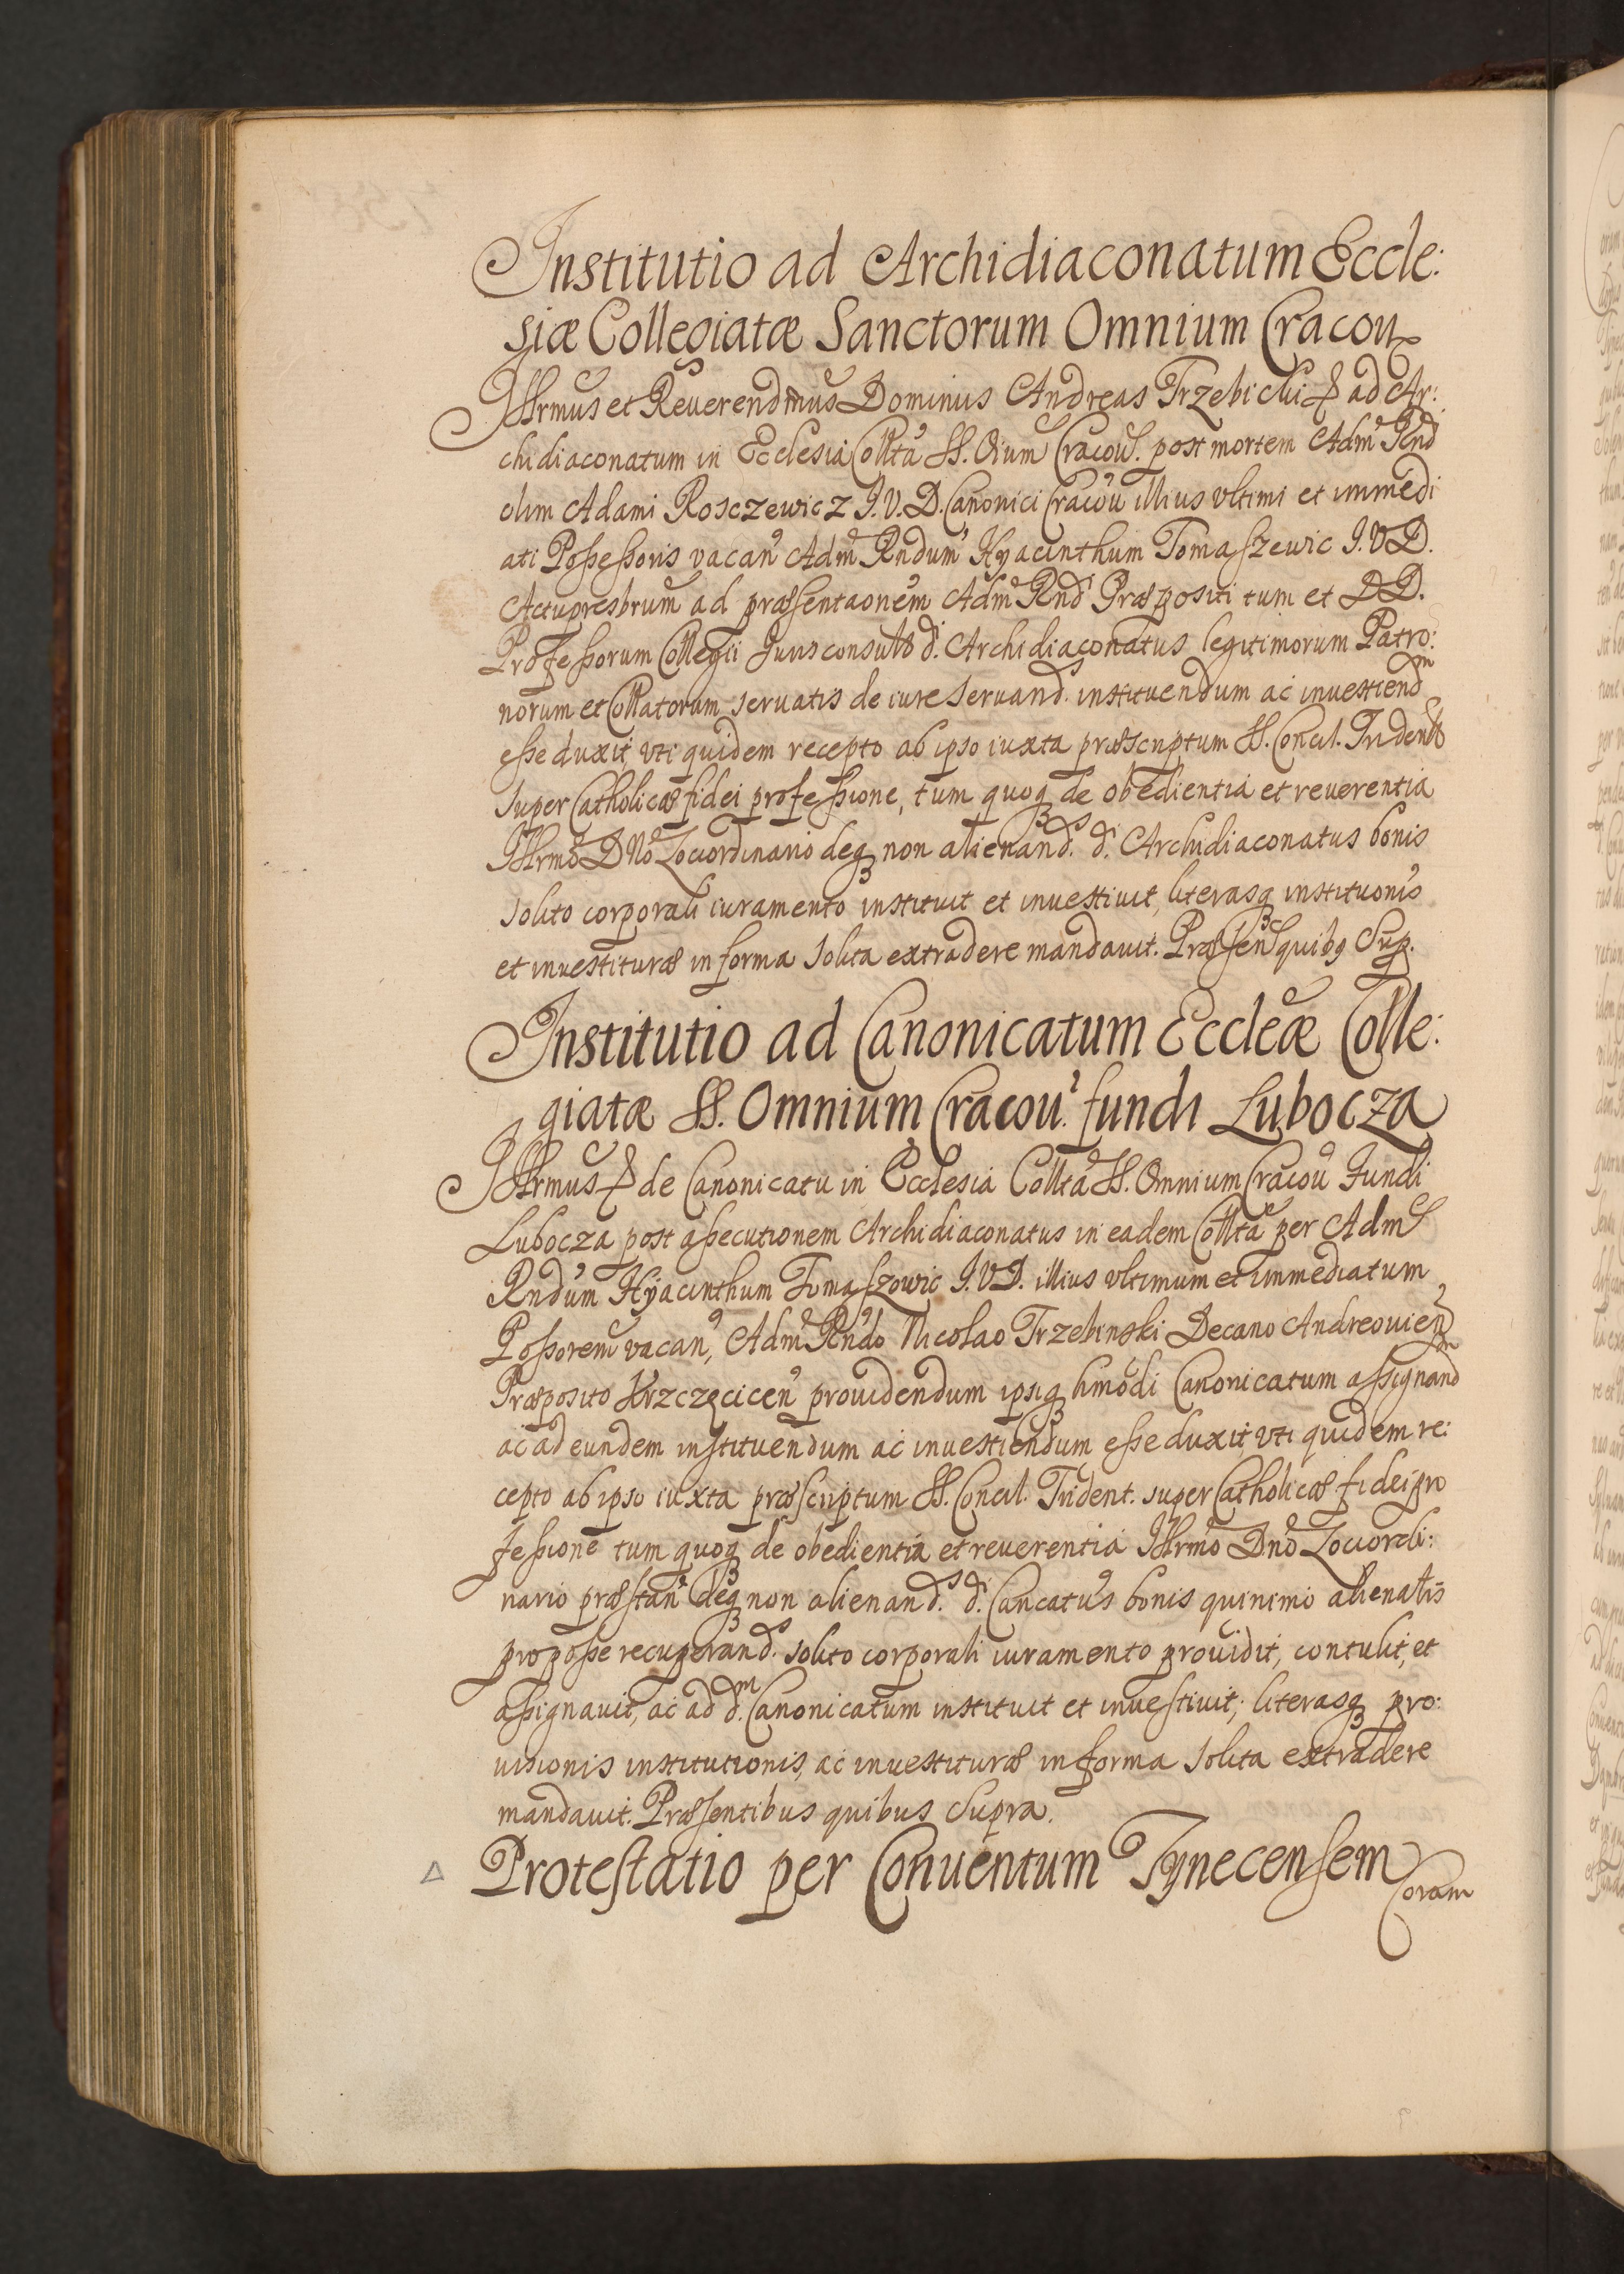 Institutio ad Archidiaconatum Eccle:
siæ Collegiatæ Sanctorum Omnium Cracou
Illrmus et Reuerendmus Dominus Andreas Trzebicki & ad Ar:
chidiaconatum in Ecclesia Collta SS. Oium Cracou. post mortem Adm Rnd
olim Adami Rosczewicz I.V.D. Canonici Cracou illius vltimi et immedi
ati Possessoris vacan Adm Rndum Hyacinthum Tomaszewic I.VD.
Actupresbrum ad præsentaonem Adm Rnd Præpositi tum et DD.
Professorum Collegii Iurisconsult d. Archidiaconatus legitimorum Patro:
norum et Collatorum seruatis de iure seruand. instituendum ac inuestiendm
esse duxit, vti quidem recepto ab ipso iuxta præscriptum SS. Concil. Trident
super Catholicæ fidei professione, tum quoq de obedientia et reuerentia
Illrmo DNo Lociordinario deq non alienand. di Archidiaconatus bonis
solito corporali iuramento instituit et inuestiuit, literasq institutionis
et inuestituræ in forma solita extradere mandauit. Præsen quibq Sup.
Institutio ad Canonicatum Eccleæ Colle:
giatæ SS. Omnium Cracou. fundi Lubocza
Illrmus & de Canonicatu in Ecclesia Collta SS. Omnium Cracou Fundi
Lubocza post assecutionem Archidiaconatus in eadem Collta per Adm
Rndum Hyacinthum Tomaszowic I.VD. illius vltimum et immediatum
Possorem vacan, Adm Rndo Nicolao Trzebinski Decano Andreouien
Præposito Krzczęcicen prouidendum ipsiq hmodi Canonicatum assignandm
ac ad eundem instituendum ac inuestiendum esse duxit, vti quidem re:
cepto ab ipso iuxta præscriptum SS. Concil. Trident. super Catholicæ fidei pro
fessione tum quoq de obedientia et reuerentia Illrmo Dno Lociordi:
nario præstan deq non alienand. di Cancatus bonis quinimo alienatis
pro posse recuperand. solito corporali iuramento prouidit, contulit, et
assignauit, ac ad d.m Canonicatum instituit et inuestiuit; literasq pro:
uisionis institutionis, ac inuestituræ in forma solita extradere
mandauit. Præsentibus quibus Supra.
Protestatio per Conuentum Tynecensem
Coram